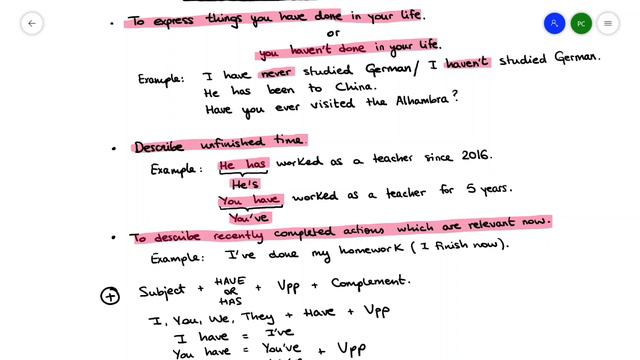 • To express things you have done in your life.
or
you haven't done in your life.
Example: I have never studied German/ I haven't studied German.
He has been to China.
Have you ever visited the Alhambra?
• Describe unfinished time.
Example: He has worked as a teacher since 2016.
He's
You have worked as a teacher for 5 years.
You've
• To describe recently completed actions which are relevant now.
Example: I've done my homework (I finish now).
+ Subject + HAVE OR HAS + Vpp + Complement.
I, You, We, They + Have + Vpp
I have = I've
You have = You've + Vpp
PC